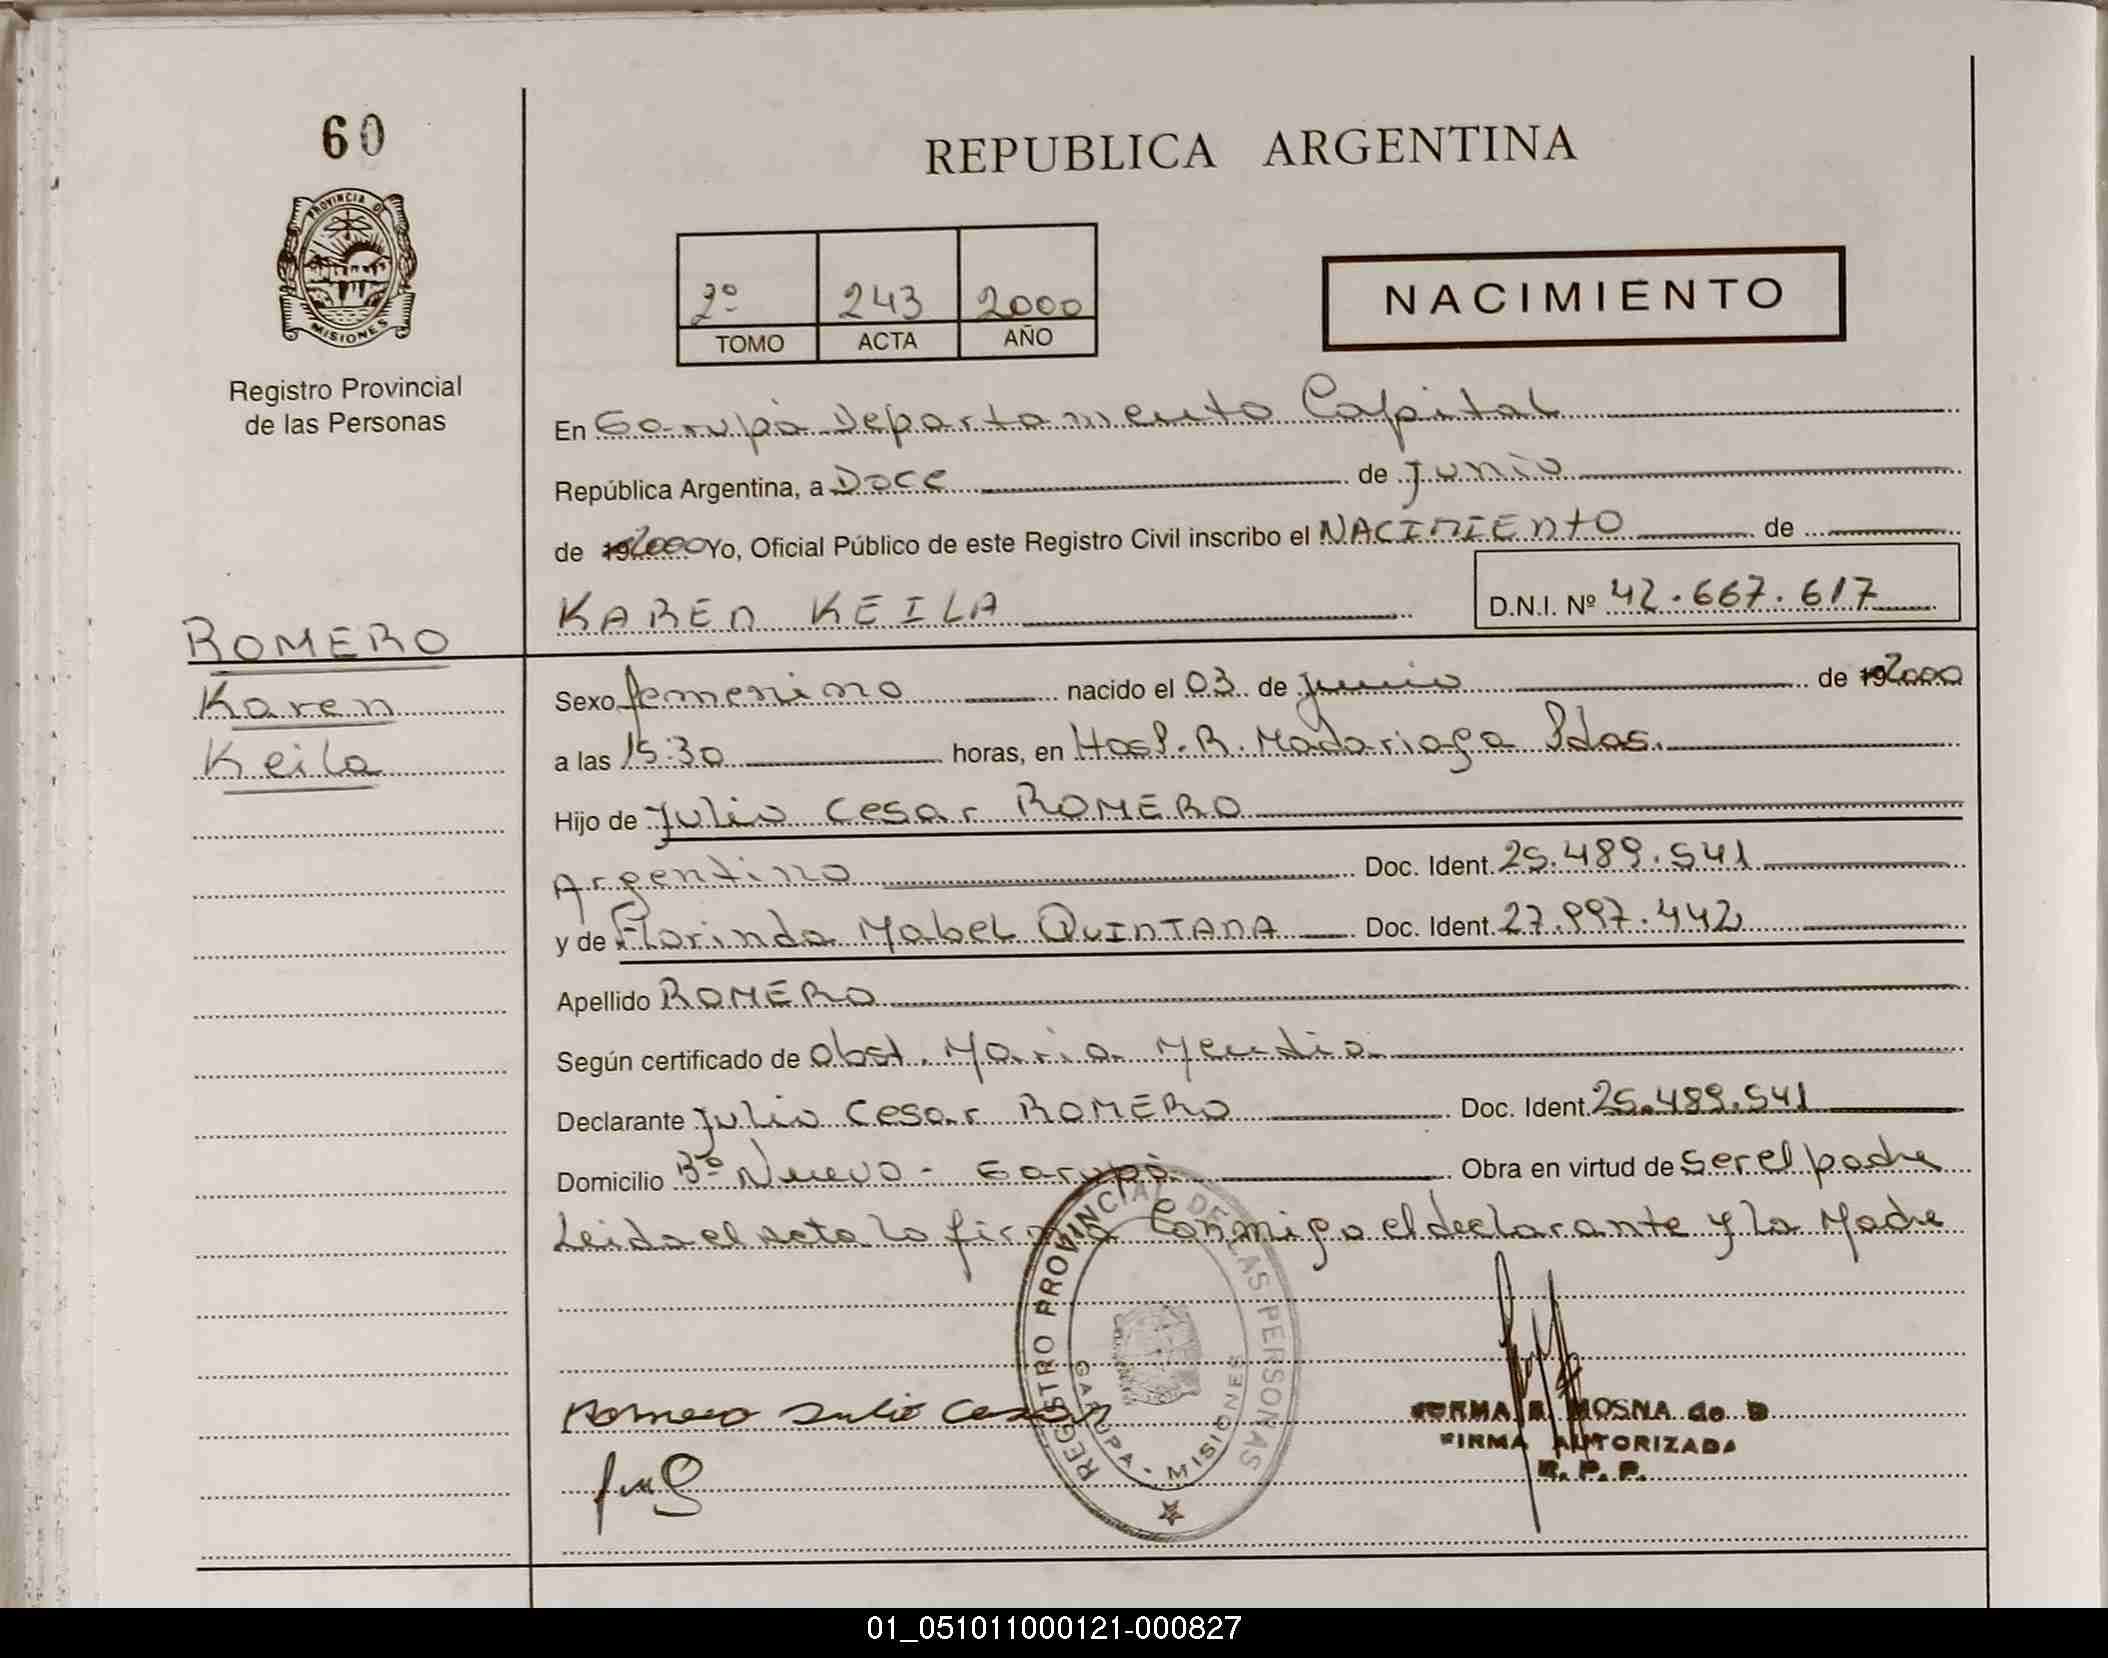 60
PROVINCIA DE
MISIONES
Registro Provincial
de las Personas
REPUBLICA ARGENTINA
2º 243 2000
TOMO ACTA AÑO
NACIMIENTO
En Garupá Departamento Capital
República Argentina, a Doce de Junio
de 192000 Yo, Oficial Público de este Registro Civil inscribo el NACIMIENTO de
KAREN KEILA D.N.I. Nº 42.667.617
ROMERO
Karen
Keila
Sexo femenino nacido el 03 de junio de 192000
a las 15:30 horas, en Hosp. R. Madariaga Pdas.
Hijo de Julio Cesar ROMERO
Argentino Doc. Ident. 25.489.541
y de Florinda Mabel QUINTANA Doc. Ident. 27.997.442
Apellido ROMERO
Según certificado de Obst. Maria Mendia
Declarante Julio Cesar ROMERO Doc. Ident. 25.489.541
Domicilio Bº Nuevo - Garupá Obra en virtud de ser el padre
Leida el acta la firma conmigo el declarante y la Madre
REGISTRO PROVINCIAL DE LAS PERSONAS
GARUPA - MISIONES
Romero Julio Cesar
NORMA B. MOSNA de D
FIRMA AUTORIZADA
R. P. P.
01_051011000121-000827